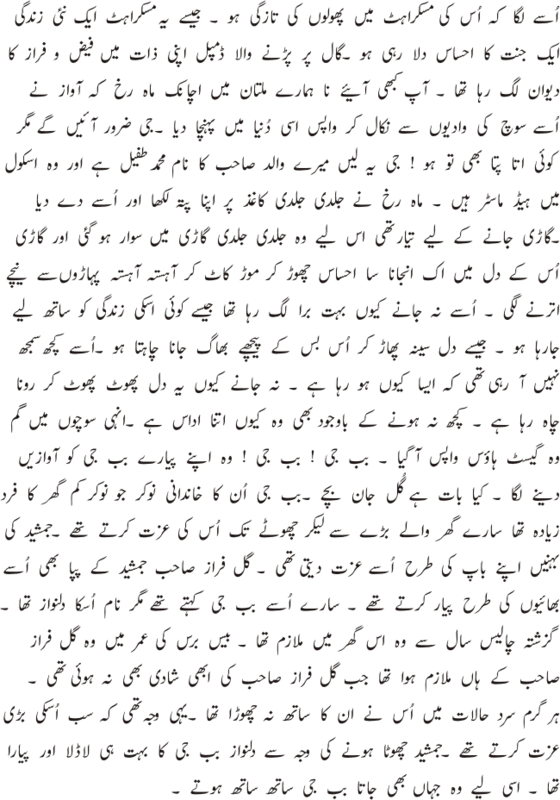 اُسے لگا کہ اُس کی مسکراہٹ میں پھولوں کی تازگی ہو ۔ جیسے یہ مسکراہٹ ایک نئی زندگی
ایک جنت کا احساس دلا رہی ہو ۔گال پر پڑنے والا ڈمپل اپنی ذات میں فیض و فراز کا
دیوان لگ رہا تھا ۔ آپ کبھی آیئے نا ہمارے ملتان میں اچانک ماہ رخ کہ آواز نے
اُسے سوچ کی وادیوں سے نکال کر واپس اسی دُنیا میں پہنچا دیا ۔جی ضرور آئیں گے مگر
کوئی اتا پتا بھی تو ہو ! جی یہ لیں میرے والد صاحب کا نام محمد طفیل ہے اور وہ اسکول
میں ہیڈ ماسٹر ہیں ۔ ماہ رخ نے جلدی جلدی کاغذ پر اپنا پتہ لکھا اور اُسے دے دیا
۔گاڑی جانے کے لیے تیار تھی اس لیے وہ جلدی جلدی گاڑی میں سوار ہو گئی اور گاڑی
اُس کے دل میں اک انجانا سا احساس چھوڑ کر موڑ کاٹ کر آہستہ آہستہ پہاڑوں سے نیچے
اترنے لگی ۔ اُسے نہ جانے کیوں بہت برا لگ رہا تھا جیسے کوئی اسکی زندگی کو ساتھ لیے
جارہا ہو ۔ جیسے دل سینہ پھاڑ کر اُس بس کے پیچھے بھاگ جانا چاہتا ہو ۔اُسے کچھ سمجھ
نہیں آ رہی تھی کہ ایسا کیوں ہو رہا ہے ۔ نہ جانے کیوں یہ دل پھوٹ پھوٹ کر رونا
چاہ رہا ہے ۔ کچھ نہ ہونے کے باوجود بھی وہ کیوں اتنا اداس ہے ۔انہی سوچوں میں گم
وہ گیسٹ ہاؤس واپس آ گیا ۔ بب جی ! بب جی ! وہ اپنے پیارے بب جی کو آوازیں
دینے لگا ۔ کیا بات ہے گُل جان بچے ۔بب جی اُن کا خاندانی نوکر جو نوکر کم گھر کا فرد
زیادہ تھا سارے گھر والے بڑے سے لیکر چھوٹے تک اُس کی عزت کرتے تھے ۔جمشید کی
بہنیں اپنے باپ کی طرح اُسے عزت دیتی تھی ۔ گل فراز صاحب جمشید کے پپا بھی اُسے
بھائیوں کی طرح پیار کرتے تھے ۔ سارے اُسے بب جی کہتے تھے مگر نام اُسکا دلنواز تھا ۔
گزشتہ چالیس سال سے وہ اس گھر میں ملازم تھا ۔ بیس برس کی عمر میں وہ گل فراز
صاحب کے ہاں ملازم ہوا تھا جب گل فراز صاحب کی ابھی شادی بھی نہ ہوئی تھی ۔
ہر گرم سرد حالات میں اُس نے ان کا ساتھ نہ چھوڑا تھا ۔یہی وجہ تھی کہ سب اُسکی بڑی
عزت کرتے تھے ۔جمشید چھوٹا ہونے کی وجہ سے دلنواز بب جی کا بہت ہی لاڈلا اور پیارا
تھا ۔ اسی لیے وہ جہاں بھی جاتا بب جی ساتھ ساتھ ہوتے ۔